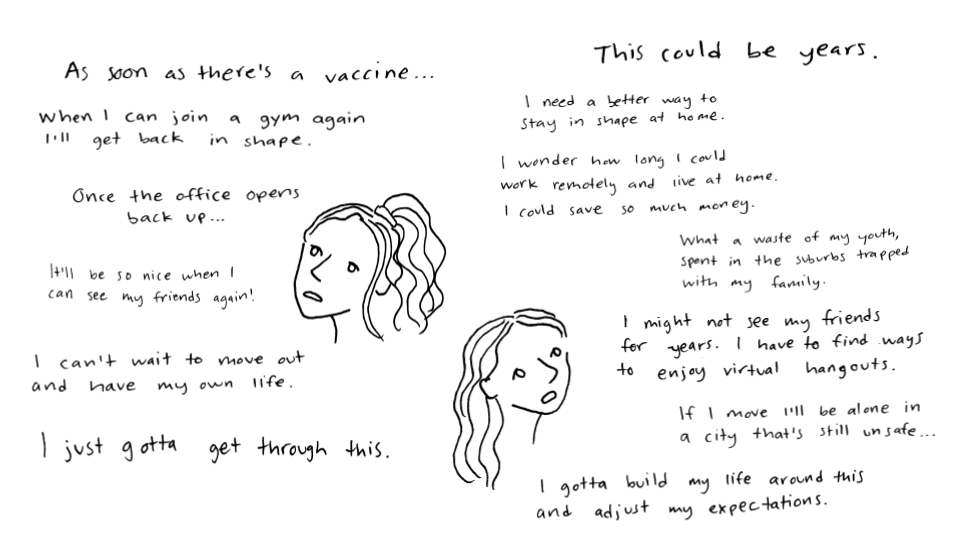 As soon as there's a vaccine...
When I can join a gym again
I'll get back in shape.
Once the office opens
back up...
It'll be so nice when I
can see my friends again!
I can't wait to move out
and have my own life.
I just gotta get through this.
This could be years.
I need a better way to
stay in shape at home.
I wonder how long I could
work remotely and live at home.
I could save so much money.
What a waste of my youth,
spent in the suburbs trapped
with my family.
I might not see my friends
for years. I have to find ways
to enjoy virtual hangouts.
If I move I'll be alone in
a city that's still unsafe...
I gotta build my life around this
and adjust my expectations.